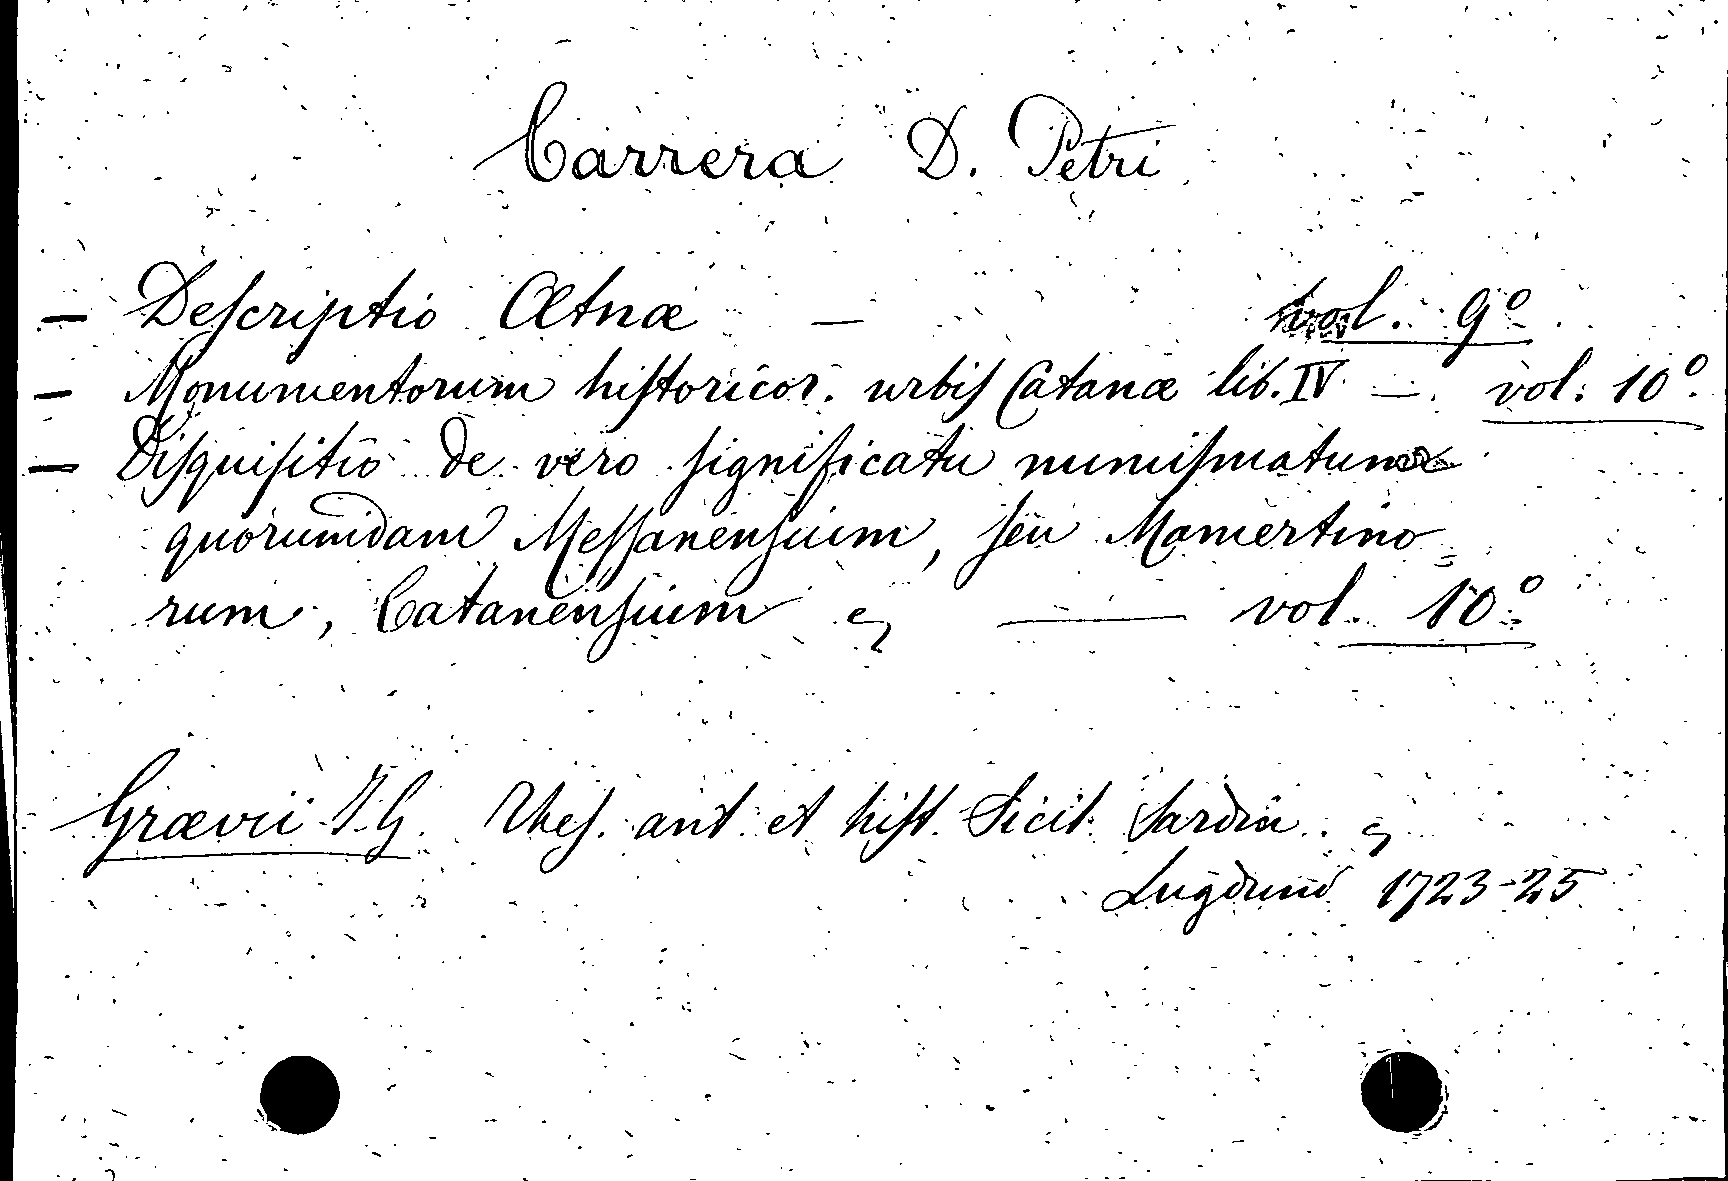 Carrera D. Petri
— Deſcriptio Ætnæ — vol. 9º
— Monumentorum hiſtoricor. urbiſ Catanæ lib. IV — vol. 10º
— Diſquiſitio de vero ſignificatu numiſmatum
quorumdam Meſſanenſium, ſeu Mamertino=
rum, Catanenſium — vol. 10º
Grævii J. G. Theſ. ant. et hiſt. Sicil. Sardin.
Lugduni 1723-25